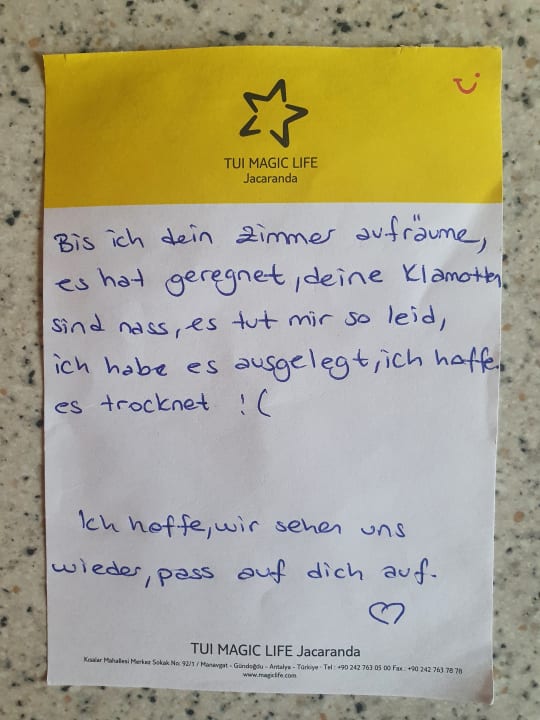 TUI MAGIC LIFE
Jacaranda
Bis ich dein zimmer aufräume,
es hat geregnet, deine Klamotten
sind nass, es tut mir so leid,
ich habe es ausgelegt, ich hoffe
es trocknet !(
Ich hoffe, wir sehen uns
wieder, pass auf dich auf.
TUI MAGIC LIFE Jacaranda
Kısalar Mahallesi Merkez Sokak No: 92/1 / Manavgat - Gündoğdu - Antalya - Türkiye - Tel : +90 242 763 05 00 Fax.: +90 242 763 78 78
www.magiclife.com